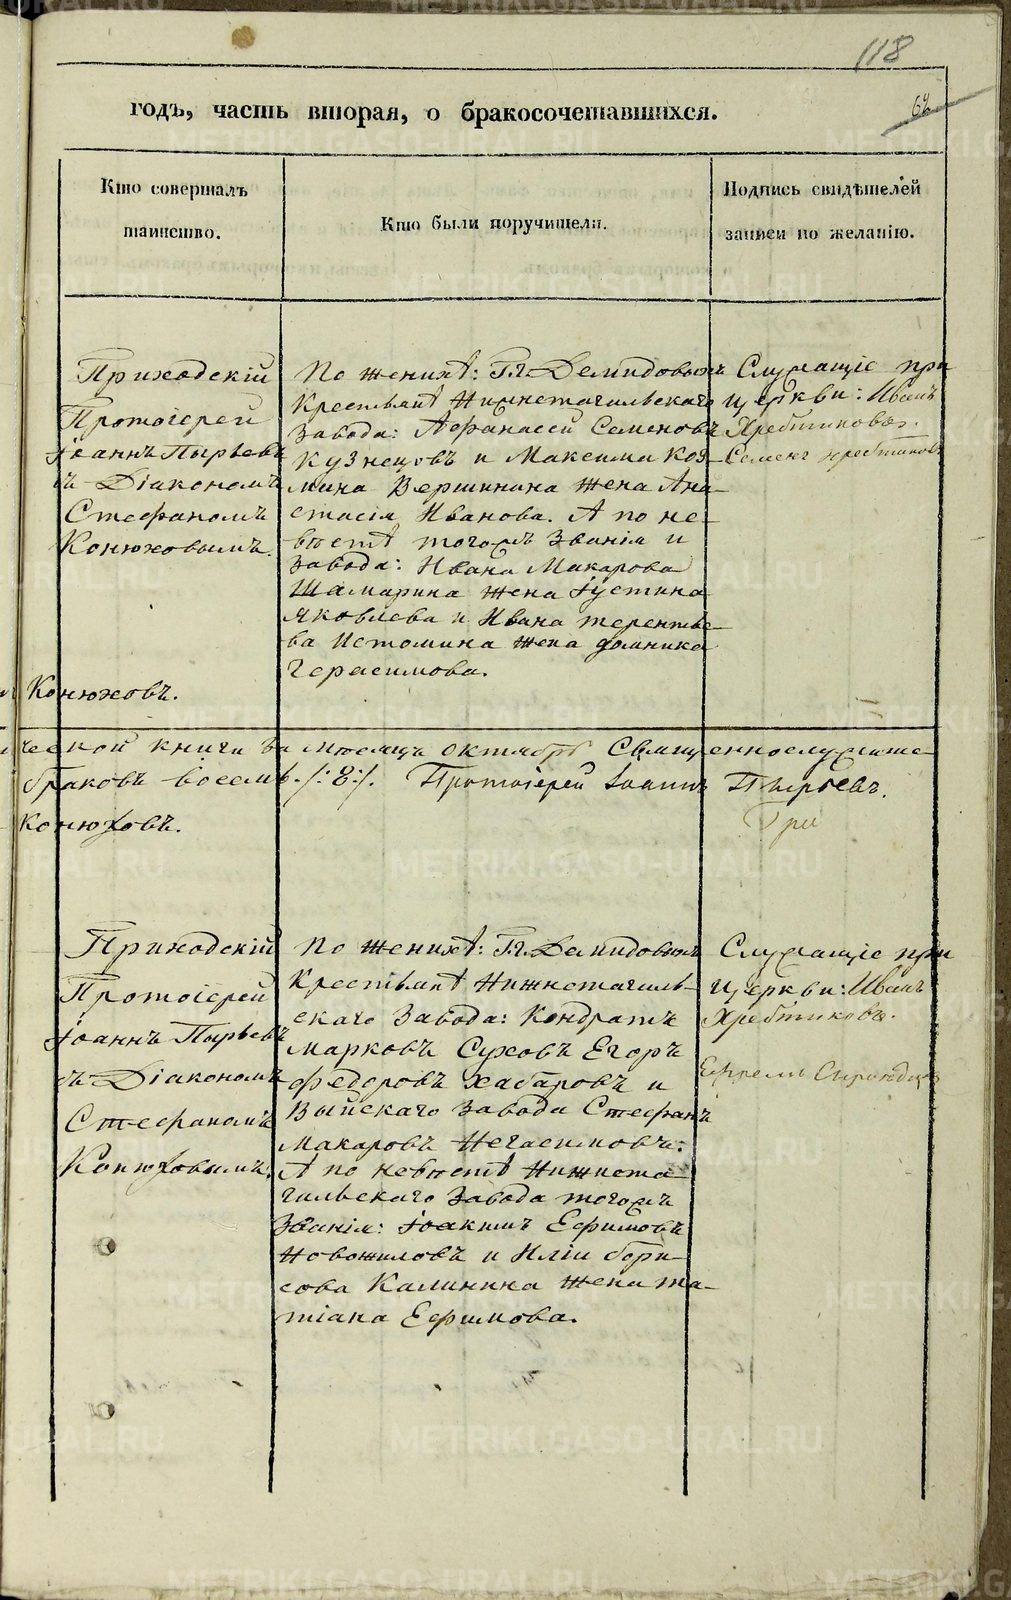 118
64
годъ, часть вторая, о бракосочетавшихся.
Кто совершалъ
таинство.
Кто были поручители.
Подпись свидѣтелей
записи по желанію.
Приходскій
Протоіерей
Іоаннъ Пырьевъ
съ Діакономъ
Стефаномъ
Конюховымъ.
По женихѣ: Г.г. Демидовыхъ
Крестьянѣ Нижнетагильскаго
завода: Афанасей Семеновъ
Кузнецовъ и Максима Коз-
мина Вершинина жена Ана-
стасія Иванова. А по не-
вѣстѣ тогожъ званія и
завода: Ивана Макарова
Шамарина жена Іустина
Яковлева и Ивана Теренть-
ва Истомина жена Домника
Герасимова.
Служащіе при
церкви: Иванъ
Хребтиковъ.
Семенъ Хребтиковъ
Конюховъ.
ческой книги за мѣсяцъ октябрь Священнослужите-
браковъ восемь ./:8:/. Протоіерей Іоаннъ Пырьевъ.
Конюховъ.
Три
Приходскій
Протоіерей
Іоаннъ Пырьевъ
съ Діакономъ
Стефаномъ
Конюховымъ.
По женихѣ: Г.г. Демидовыхъ
Крестьянѣ Нижнетагиль-
скаго завода: Кондратъ
Марковъ Суховъ Егоръ
Федоровъ Хабаровъ и
Выйскаго завода Стефанъ
Макаровъ Негасимовъ:
А по невѣстѣ Нижнета-
гильскаго завода тогожъ
званія: Іоакимъ Ефимовъ
Новожиловъ и Иліи Бори-
сова Калинина жена Та-
тіана Ефимова.
Служащіе при
церкви: Иванъ
Хребтиковъ.
Ефремъ
METRIKI.GASO-URAL.RU